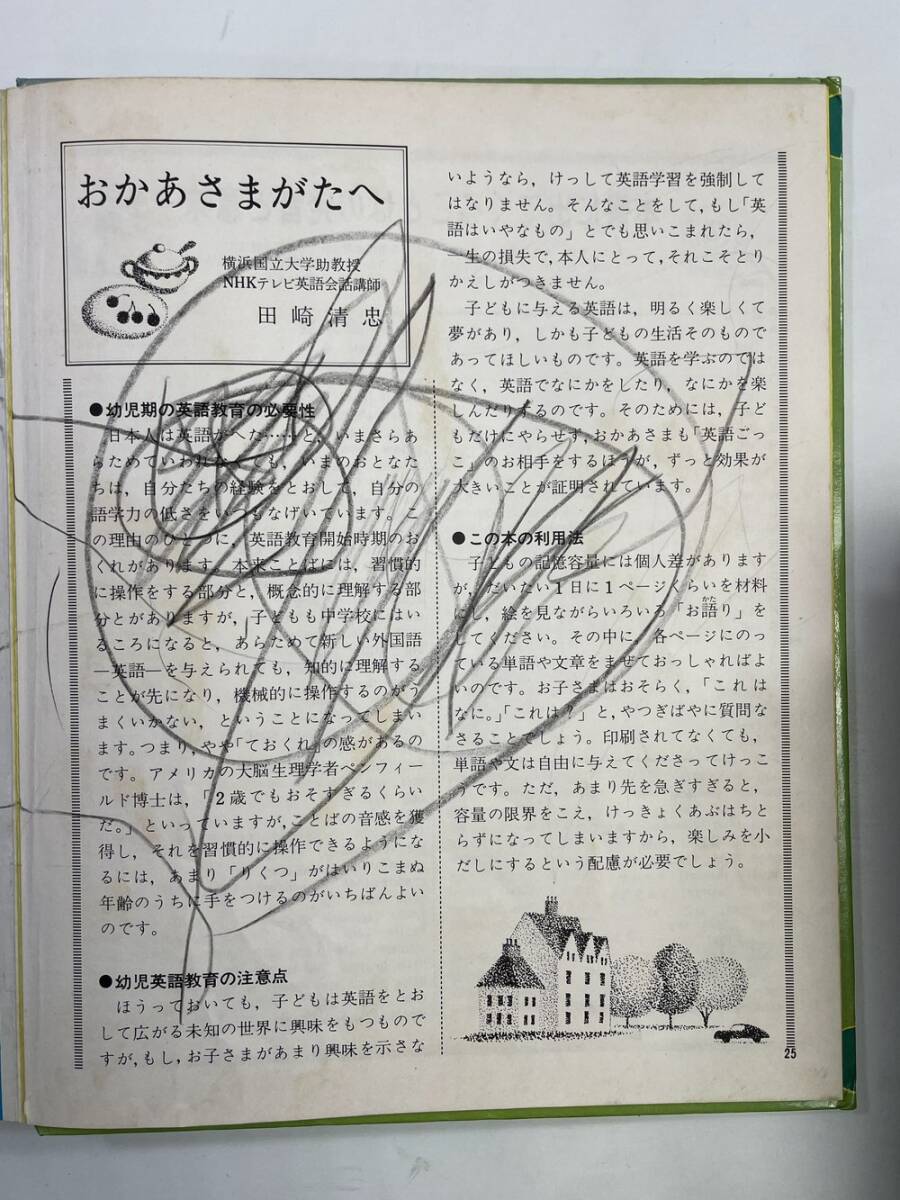 おかあさまがたへ
横浜国立大学助教授
NHKテレビ英語会話講師
田崎清忠
●幼児期の英語教育の必要性
日本人は英語がへた……と、いまさらあ
らためていわれなくても、いまのおとなた
ちは、自分たちの経験をとおして、自分の
語学力の低さをいつもなげいています。こ
の理由のひとつに、英語教育開始時期のお
くれがあります。本来ことばには、習慣的
に操作をする部分と、概念的に理解する部
分とがありますが、子どもも中学校にはい
るころになると、あらためて新しい外国語
—英語—を与えられても、知的に理解する
ことが先になり、機械的に操作するのがう
まくいかない、ということになってしまい
ます。つまり、やや「ておくれ」の感があるの
です。アメリカの大脳生理学者ペンフィー
ルド博士は、「2歳でもおそすぎるくらい
だ。」といっていますが、ことばの音感を獲
得し、それを習慣的に操作できるようにな
るには、あまり「りくつ」がはいりこまぬ
年齢のうちに手をつけるのがいちばんよい
のです。
●幼児英語教育の注意点
ほうっておいても、子どもは英語をとお
して広がる未知の世界に興味をもつもので
すが、もし、お子さまがあまり興味を示さな
いようなら、けっして英語学習を強制して
はなりません。そんなことをして、もし「英
語はいやなもの」とでも思いこまれたら、
一生の損失で、本人にとって、それこそとり
かえしがつきません。
子どもに与える英語は、明るく楽しくて
夢があり、しかも子どもの生活そのもので
あってほしいものです。英語を学ぶのでは
なく、英語でなにかをしたり、なにかを楽
しんだりするのです。そのためには、子ど
もだけにやらせず、おかあさまも「英語ごっ
こ」のお相手をするほうが、ずっと効果が
大きいことが証明されています。
●この本の利用法
子どもの記憶容量には個人差があります
が、だいたい1日に1ページくらいを材料
とし、絵を見ながらいろいろ「お語り」を
してください。その中に、各ページにのっ
ている単語や文章をまぜておっしゃればよ
いのです。お子さまはおそらく、「これは
なに。」「これは?」と、やつぎばやに質問な
さることでしょう。印刷されてなくても、
単語や文は自由に与えてくださってけっこ
うです。ただ、あまり先を急ぎすぎると、
容量の限界をこえ、けっきょくあぶはちと
らずになってしまいますから、楽しみを小
だしにするという配慮が必要でしょう。
25